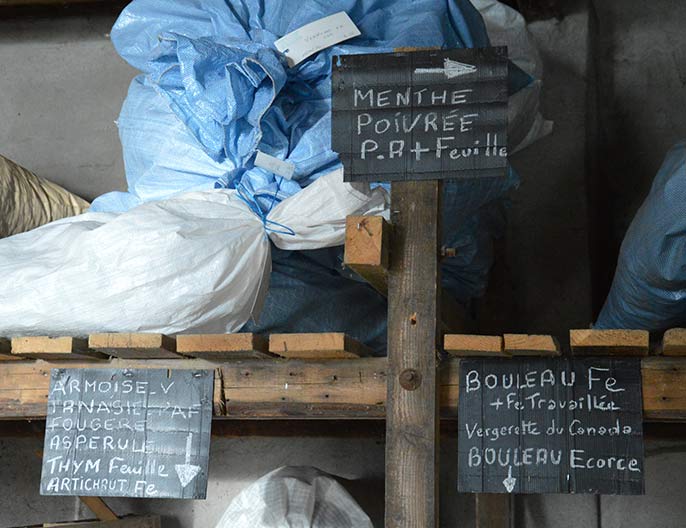 MENTHE
POIVRÉE
P.A + Feuille
ARMOISE_V
FOUGERE
ASPERULE
THYM Feuille
ARTICHAUT Fe
BOULEAU Fe
+ Fe Travaillée
Vergerette du Canada
BOULEAU Ecorce